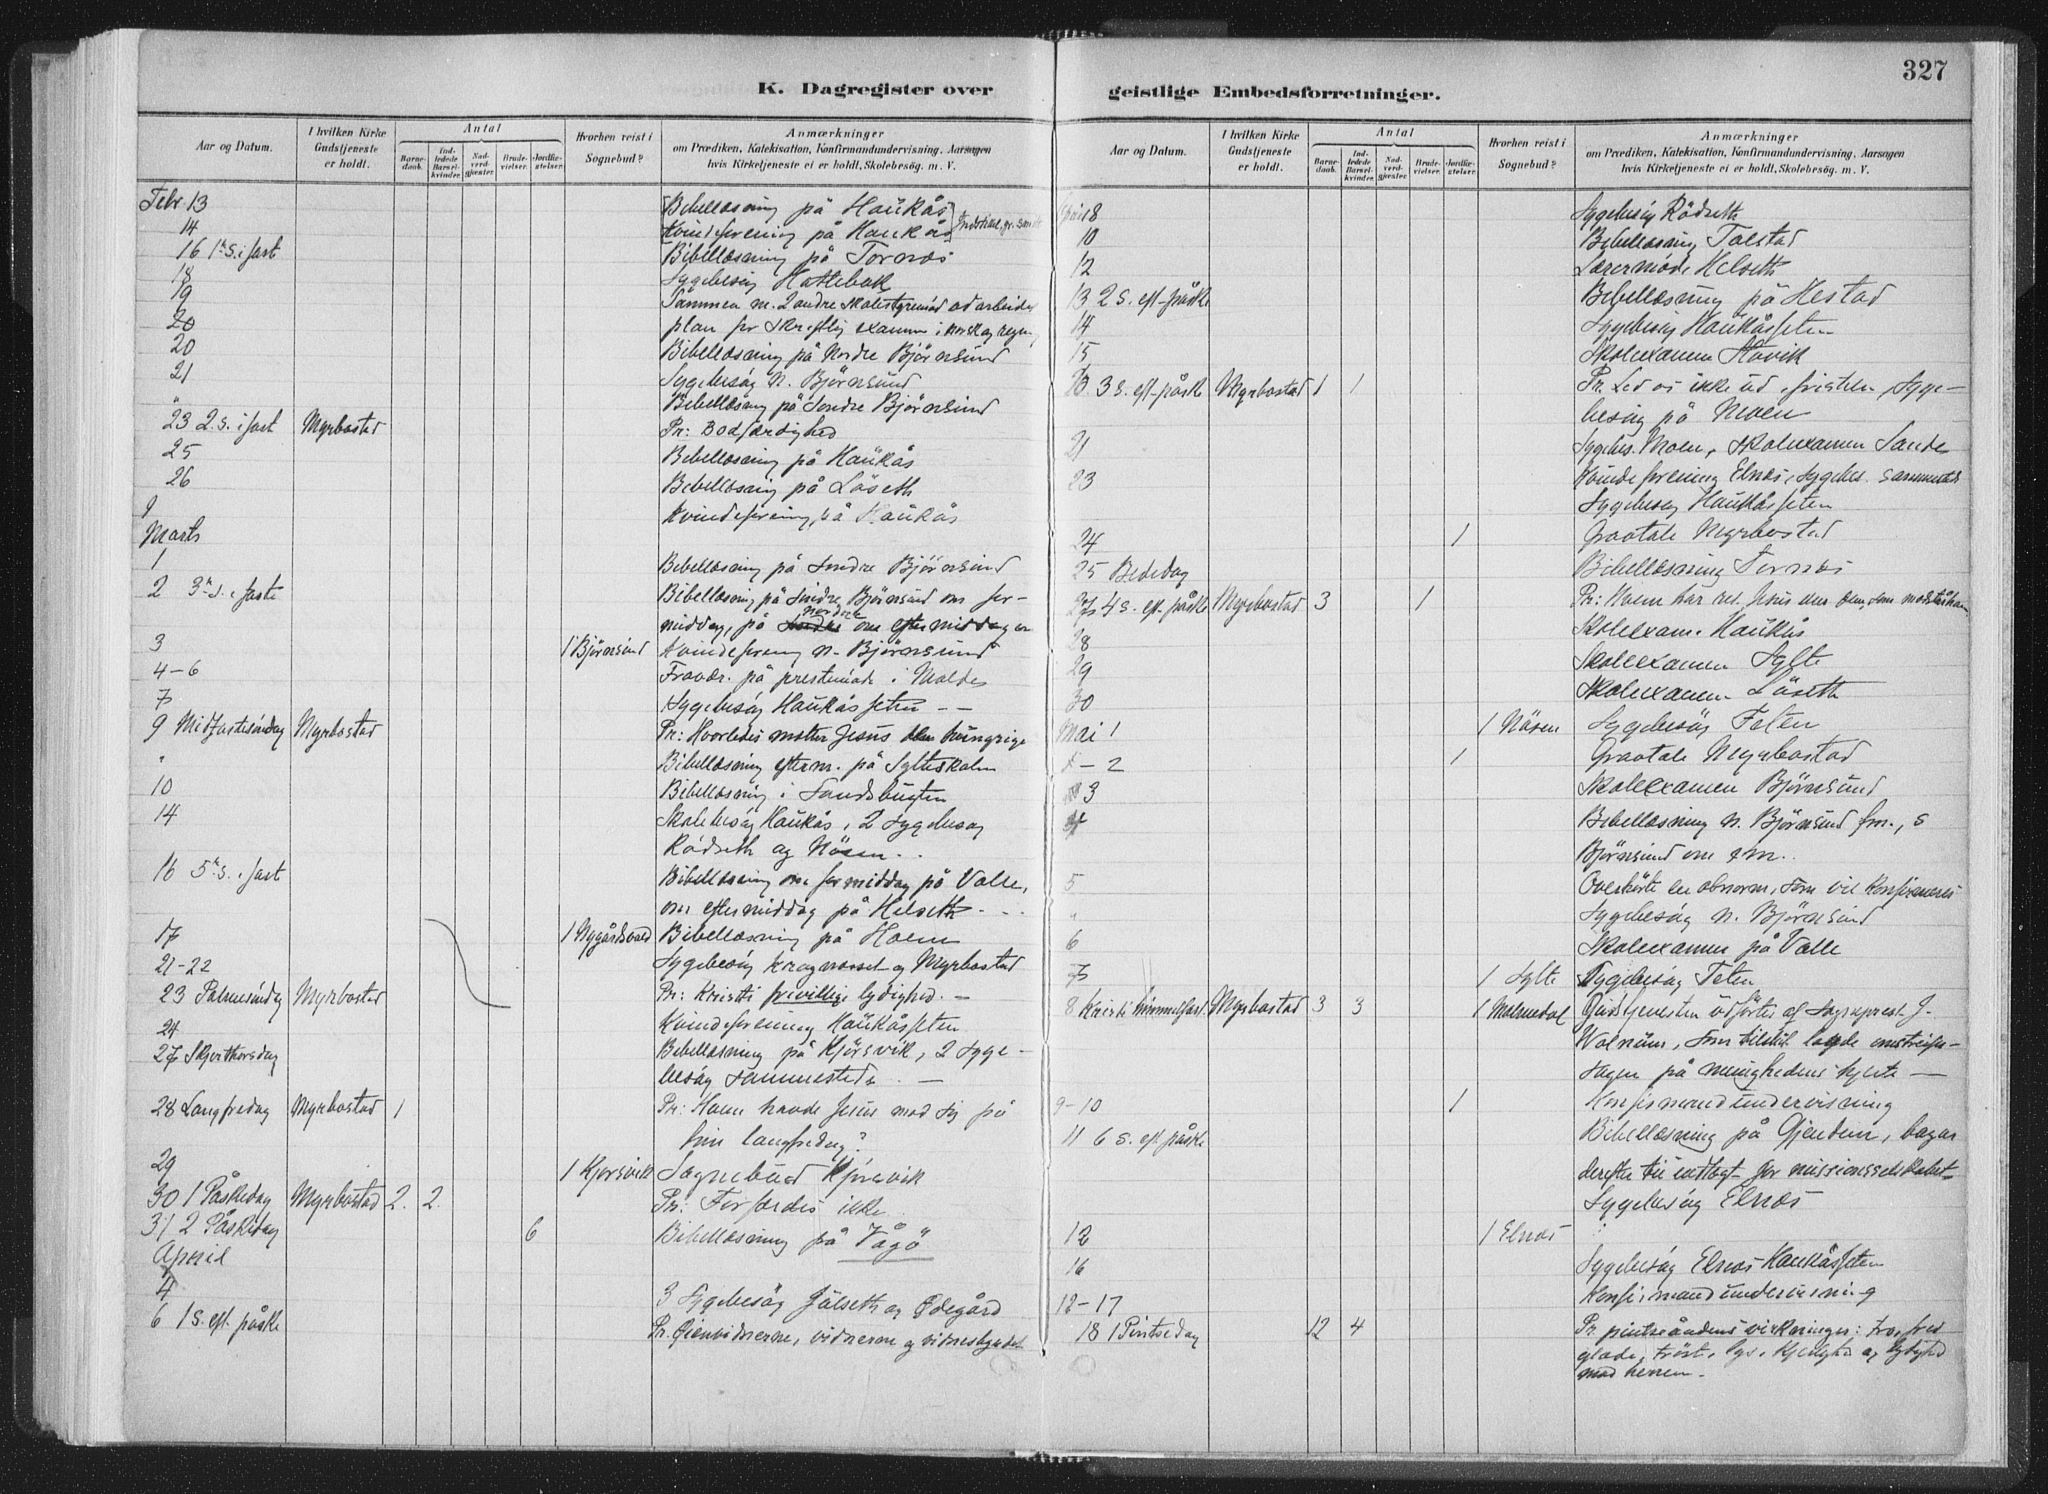 327
K. Dagregister over
geistlige Embedsforretninger.
Aar og Datum.
I hvilken Kirke Gudstjeneste er holdt.
Antal
Barnedaab.
Indledede Barselkvinder.
Nadverdgjester.
Brudevielser.
Jordfæstelser.
Hvorhen reist i Sognebud?
Anmærkninger
om Prædiken, Katekisation, Konfirmandundervisning, Aarsagen
hvis Kirketjeneste ei er holdt, Skolebesøg. m. V.
Febr 13 Bibellæsning på Haukås
14 Kvindeforening på Haukås
16 1ste S. i fast Bibellæsning på Tornæs
18 Sygebesøg Hattebak
19 Sammen m. 2 andre skolestyremed. udarbeidet
20 plan for skriftlig examen i norsk og regn
20 Bibellæsning på Nordre Björnsund
21 Sygebesög N. Björnsund
" Bibellæsning på Söndre Björnsund
23 2. S. i fast Myrbostad Pr: Bodfærdighed
25 Bibellæsning på Haukås
26 Bibellæsning på Löseth
Kvindeforening på Haukås
Marts
1 Bibellæsning på Söndre Björnsund
2 3. S. i faste Bibellæsning på Söndre Björnsund om for-
middag, på nordre om eftermiddagen
3 1 Björnsund Kvindeforening N. Björnsund
4-6 Fravær. på prestemöde i Molde
7 Sygebesög Haukåssetren - -
9 Midfastesöndag Myrbostad Pr: Hvorledes møtter Jesus den hungrige
" Bibellæsning efterm. på Sylteskolen
10 Bibellæsning i Sandsbugten
14 Skolebesög Haukås, 2 Sygebesög
Rödseth og Näsen..
16 5te S. i fast Bibellæsning om formiddag på Valle,
om eftermiddag på Helseth - . .
17 1 Nygårdsvald Bibellæsning på Holen
21-22 Sygebesög Kragnæsset og Myrbostad
23 Palmesöndag Myrbostad Pr: Kristi frivillige lydighed. -
24 Kvindeforening Haukåssetren
27 Skjærthorsdag Bibellæsning på Kjörsvik, 2 Syge-
besög sammesteds. -
28 Langfredag Myrbostad 1 Pr: Hvem havde Jesus med sig på
sin langfredag?
29 1 Kjörsvik Sognebud Kjörsvik
30 1 Påskedag Myrbostad 2. 2. Pr: Forfærdes ikke
31 2 Påskedag 6 Bibellæsning på Vågö
April
4 3 Sygebesög Julseth og Ødegård
6 1 S. eft. påske Pr. Øienvidnerne, vidnerne og vidnesbyrdet
Aar og Datum.
I hvilken Kirke Gudstjeneste er holdt.
Antal
Barnedaab.
Indledede Barselkvinder.
Nadverdgjester.
Brudevielser.
Jordfæstelser.
Hvorhen reist i Sognebud?
Anmærkninger
om Prædiken, Katekisation, Konfirmandundervisning, Aarsagen
hvis Kirketjeneste ei er holdt, Skolebesøg. m. V.
8 Sygebesög Rödseth
10 Bibellæsning Tolstad
12 Lærermöde Helseth
13 2 S. eft. påske Bibellæsning på Hestad
14 Sygebesög Haukåssetren
15 Skolexamen Havik
3 S. eft. påske Myrbostad 1 1 Pr. Led os ikke ud i fristelse, Syge-
besög på Moen
21 Sygebes. Moen, Skolexamen Sande
23 Kvindeforening Elnæs, Sygebes. sammesteds
Sygebesög Haukåssetren
24 1 Gravtale Myrbostad
25 Bededag Bibellæsning Tornæs
27 4 S. eft. påske Myrbostad 3 1 Pr: Hvem har ret, Jesus eller dem, som modstår ham
28 Skolexam. Haukås
29 Skolexamen Sylte
30 Skolexamen Löseth
Mai 1 1 Näsen Sygebesög Teten
- 2 1 Gravtale Myrbostad
3 Skolexamen Björnsund
4 Bibellæsning N. Björnsund fm., S
Björnsund om em..
5 Overhörte en abnorm, som vil konfirmeres
" Sygebesög N. Björnsund
6 Skolexamen på Valle
7 1 Sylte Sygebesög Teten
8 Kristi himmelfart Myrbostad 3 3 1 Malmedal Gudstjenesten udförtes af Sogneprest J.
Walnum, som tilslut lagde omstreifer-
sagen på menighedens hjerte -
9-10 1 Konfirmandundervisning
11 6 S. eft. påske Bibellæsning på Gjendem, bazar
derefter til indtægt for missionsselskabet-
Sygebesög Elnæs
12 1 Elnæs
16 Sygebesög Elnæs-Haukåssetren
12-17 Konfirmandundervisning
18 1 Pintsedag 12 4 Pr. pintseåndens virkninger: tro, fred
glæde, tröst, lys, kjerlighed og lydighed
mod herren.